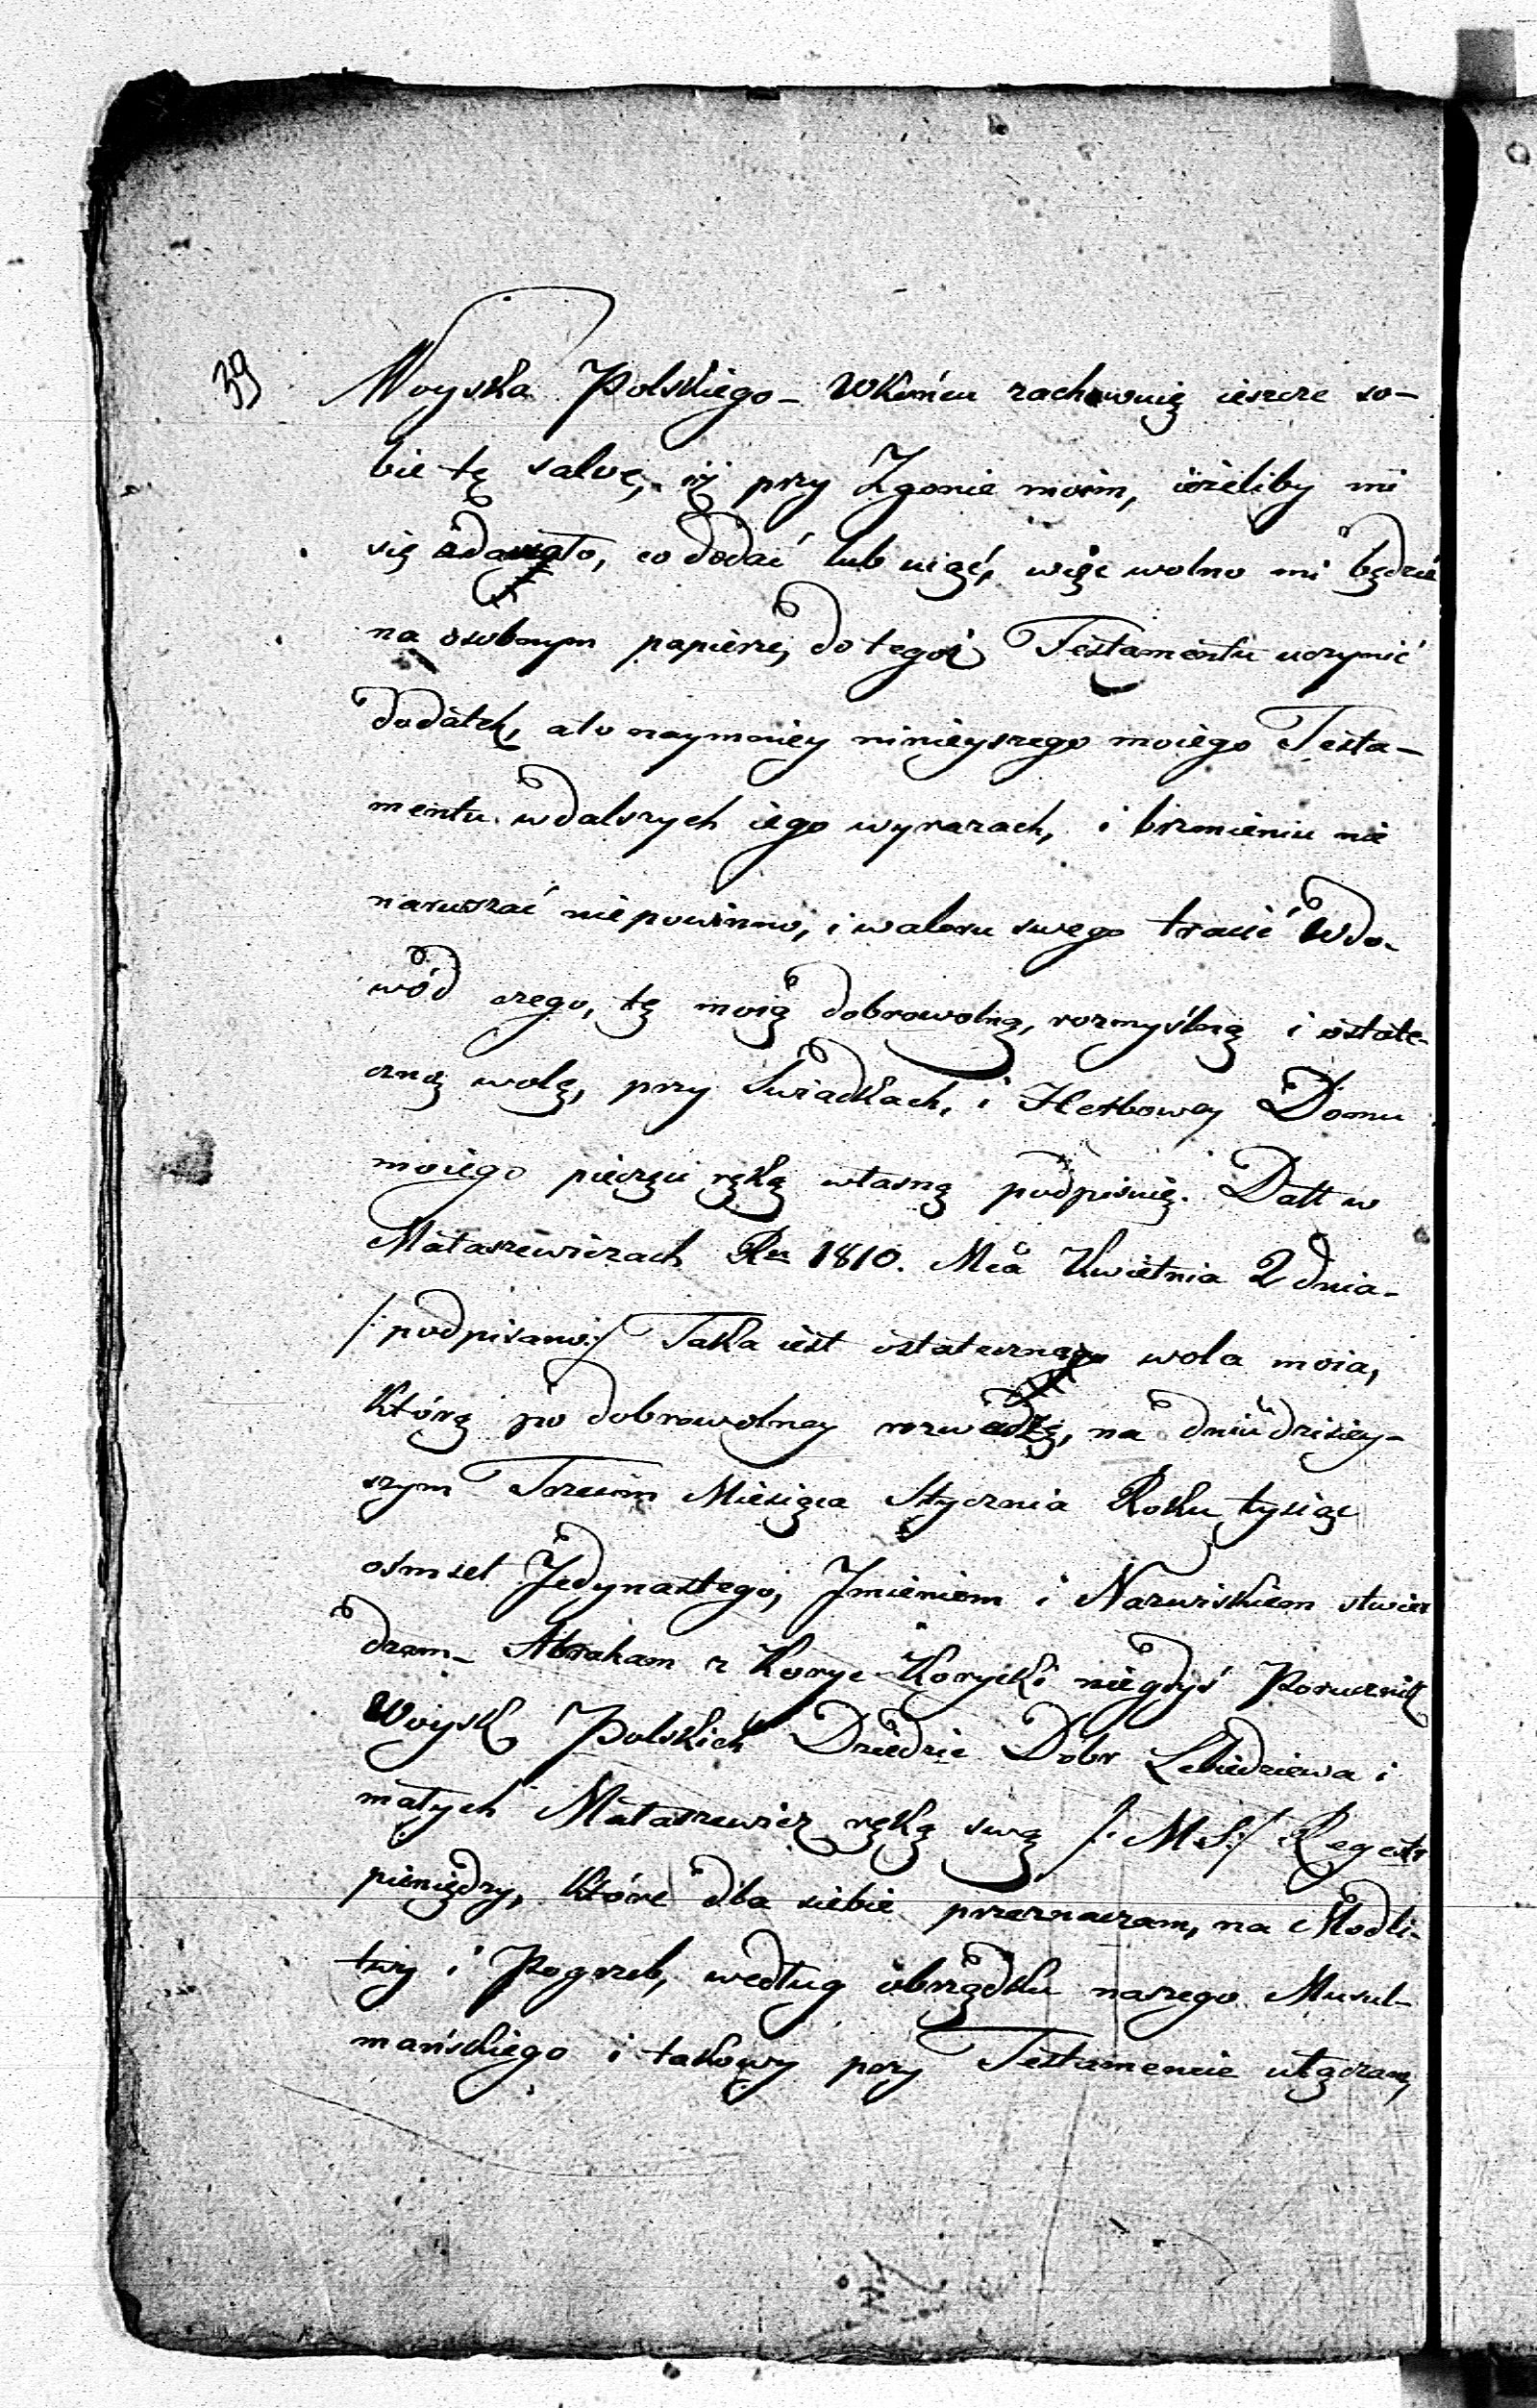 39
Woyska Polskiego – Wkońcu zachowuię ieszcze so-
bie tę salvę, iż przy Zgonie moim, ieżeliby mi
się zdawało, co dodać lub uiąć, więc wolno mi będzie
na osobnym papierze, do tegoż Testamentu uczynić
dodatek, a to naymniey ninieyszego moiego Testa-
mentu wdalszych iego wyrazach, i brzmieniu nie
naruszać niepowinno, i waloru swego tracić Wdo-
wód czego, tę moią dobrowolną, rozmyślną i ostate-
czną wolę, przy Świadkach, i Herbowey Domu
moiego pieczęci ręką własną podpisuię. Datt w
Mataszewiczach Ru 1810. Mca Kwietnia 2 dnia –
/: podpisano:/ Taka iest ostateczna wola moia,
którą po dobrowolney rozwadze, na dniu dzisiey-
szym Trzecim Miesiąca Stycznia Roku tysiąc
ośmset Jedynastego, Jmieniem i Nazwiskiem stwier
dzam – Abraham z Koryc Korycki niegdyś Porucznik
Woysk Polskich Dziedzic Dobr Lebiedziewa i
małych Mataszewicz ręką swą /: M.S:/ Regestr
pieniędzy, które dla siebie przeznaczam, na Modli-
twy i Pogrzeb, według obrządku naszego Musul-
mańskiego i takowy przy Testamencie ułączam,